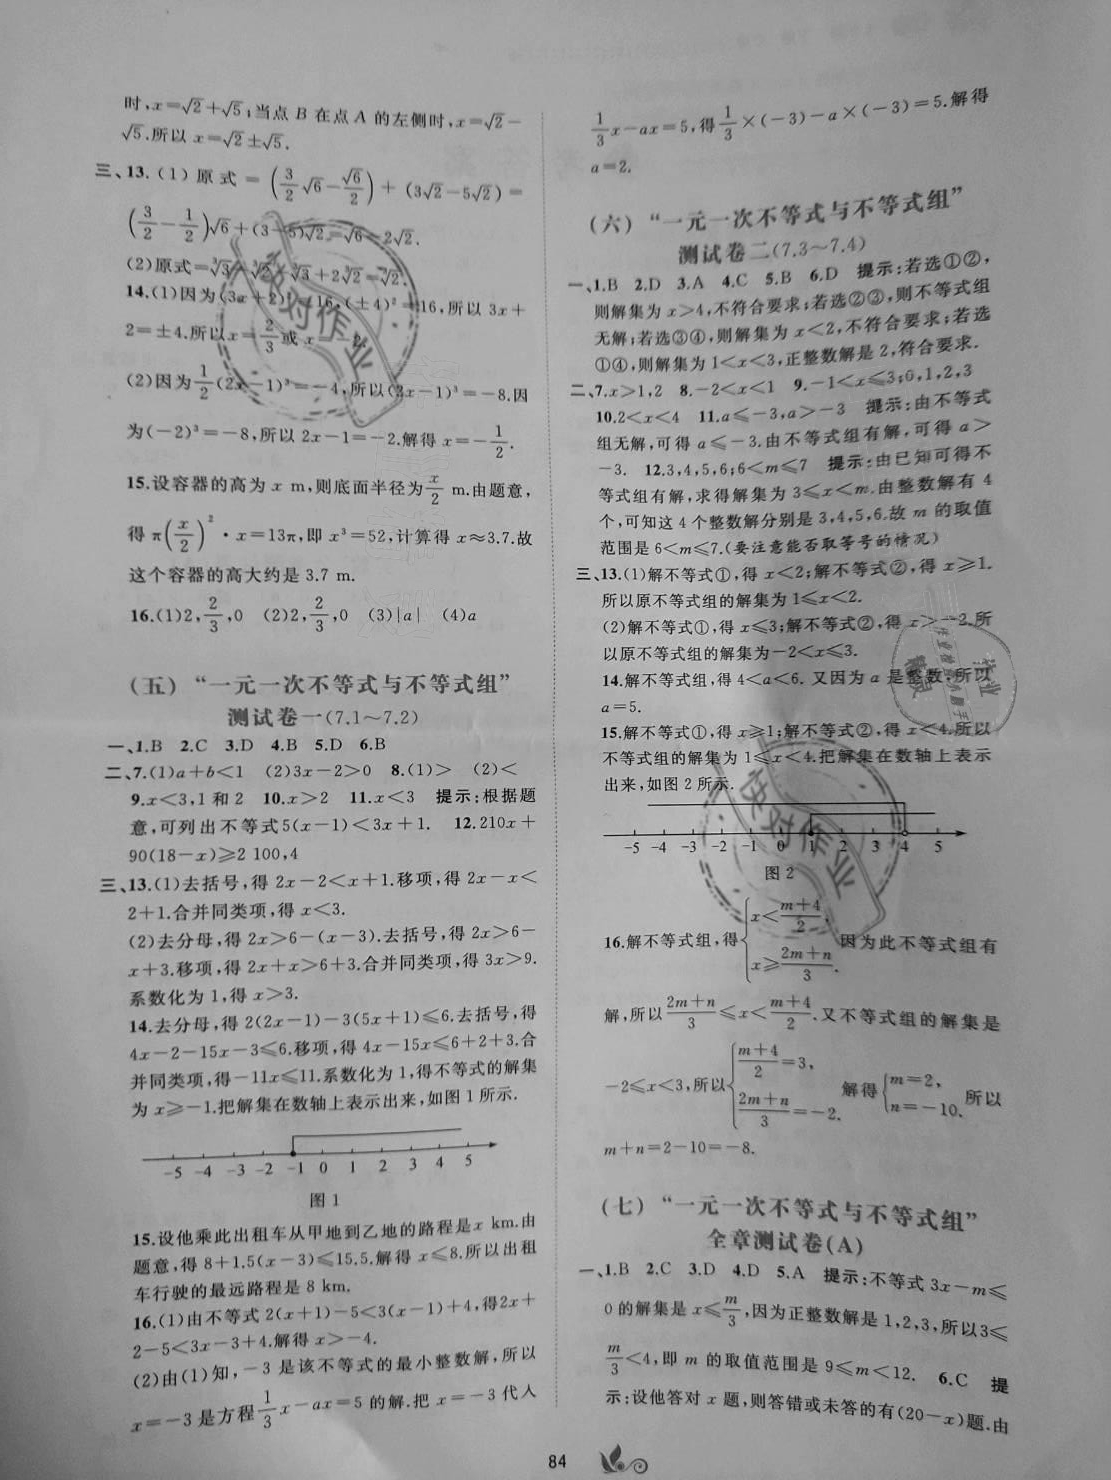 时,x=√2+√5;当点 B 在点 A 的左侧时,x=√2-
√5.所以 x=√2±√5.
三、13.(1)原式=(3/2√6-√6/2)+(3√2-5√2)=
(3/2-1/2)√6+(3-5)√2=√6-2√2.
(2)原式=
14.(1)因为(3x+2)²=16,(±4)²=16,所以 3x+
2=±4.所以 x=2/3或 x=-2.
(2)因为1/2(2x-1)³=-4,所以(2x-1)³=-8.因
为(-2)³=-8,所以 2x-1=-2.解得 x=-1/2.
15.设容器的高为 x m,则底面半径为x/2 m.由题意,
得 π(x/2)²·x=13π,即 x³=52,计算得 x≈3.7.故
这个容器的高大约是 3.7 m.
16.(1)2,2/3,0 (2)2,2/3,0 (3)|a| (4)a
(五)“一元一次不等式与不等式组”
测试卷一(7.1~7.2)
一、1.B 2.C 3.D 4.B 5.D 6.B
二、7.(1)a+b<1 (2)3x-2>0 8.(1)> (2)<
9.x<3,1 和 2 10.x>2 11.x<3 提示:根据题
意,可列出不等式5(x-1)<3x+1. 12.210x+
90(18-x)≥2 100,4
三、13.(1)去括号,得 2x-2<x+1.移项,得 2x-x<
2+1.合并同类项,得 x<3.
(2)去分母,得 2x>6-(x-3).去括号,得 2x>6-
x+3.移项,得 2x+x>6+3.合并同类项,得 3x>9.
系数化为 1,得 x>3.
14.去分母,得 2(2x-1)-3(5x+1)≤6.去括号,得
4x-2-15x-3≤6.移项,得 4x-15x≤6+2+3.合
并同类项,得-11x≤11.系数化为 1,得不等式的解集
为 x≥-1.把解集在数轴上表示出来,如图 1 所示.
-5 -4 -3 -2 -1 0 1 2 3 4 5
图 1
15.设他乘此出租车从甲地到乙地的路程是 x km.由
题意,得 8+1.5(x-3)≤15.5.解得 x≤8.所以出租
车行驶的最远路程是 8 km.
16.(1)由不等式 2(x+1)-5<3(x-1)+4,得2x+
2-5<3x-3+4.解得 x>-4.
(2)由(1)知,-3 是该不等式的最小整数解,所以
x=-3 是方程1/3x-ax=5 的解.把 x=-3 代入
1/3x-ax=5,得1/3×(-3)-a×(-3)=5.解得
a=2.
(六)“一元一次不等式与不等式组”
测试卷二(7.3~7.4)
一、1.B 2.D 3.A 4.C 5.B 6.D 提示:若选①②,
则解集为 x>4,不符合要求;若选②③,则不等式组
无解;若选③④,则解集为 x<2,不符合要求.若选
①④,则解集为 1<x<3,正整数解是 2,符合要求.
二、7.x>1,2 8.-2<x<1 9.-1<x≤3;0,1,2,3
10.2<x<4 11.a≤-3,a>-3 提示:由不等式
组无解,可得 a≤-3.由不等式组有解,可得 a>
-3. 12.3,4,5,6;6<m≤7 提示:由已知可得不
等式组有解,求得解集为 3≤x<m.由整数解有 4
个,可知这 4 个整数解分别是 3,4,5,6.故 m 的取值
范围是 6<m≤7.(要注意能否取等号的情况)
三、13.(1)解不等式①,得 x<2;解不等式②,得 x≥1.
所以原不等式组的解集为 1≤x<2.
(2)解不等式①,得 x≤3;解不等式②,得 x>-2.所
以原不等式组的解集为-2<x≤3.
14.解不等式组,得 4<a<6. 又因为 a 是整数,所以
a=5.
15.解不等式①,得 x≥1;解不等式②,得 x<4.所以
不等式组的解集为 1≤x<4.把解集在数轴上表示
出来,如图 2 所示.
-5 -4 -3 -2 -1 0 1 2 3 4 5
图 2
16.解不等式组,得{x<(m+4)/2, x≥(2m+n)/3. 因为此不等式组有
解,所以(2m+n)/3≤x<(m+4)/2.又不等式组的解集是
-2≤x<3,所以{(m+4)/2=3, (2m+n)/3=-2. 解得{m=2, n=-10. 所以
m+n=2-10=-8.
(七)“一元一次不等式与不等式组”
全章测试卷(A)
一、1.B 2.C 3.D 4.D 5.A 提示:不等式 3x-m≤
0 的解集是 x≤m/3,因为正整数解是 1,2,3,所以3≤
m/3<4,即 m 的取值范围是 9≤m<12. 6.C 提
示:设他答对 x 题,则答错或未答的有(20-x)题.由
84